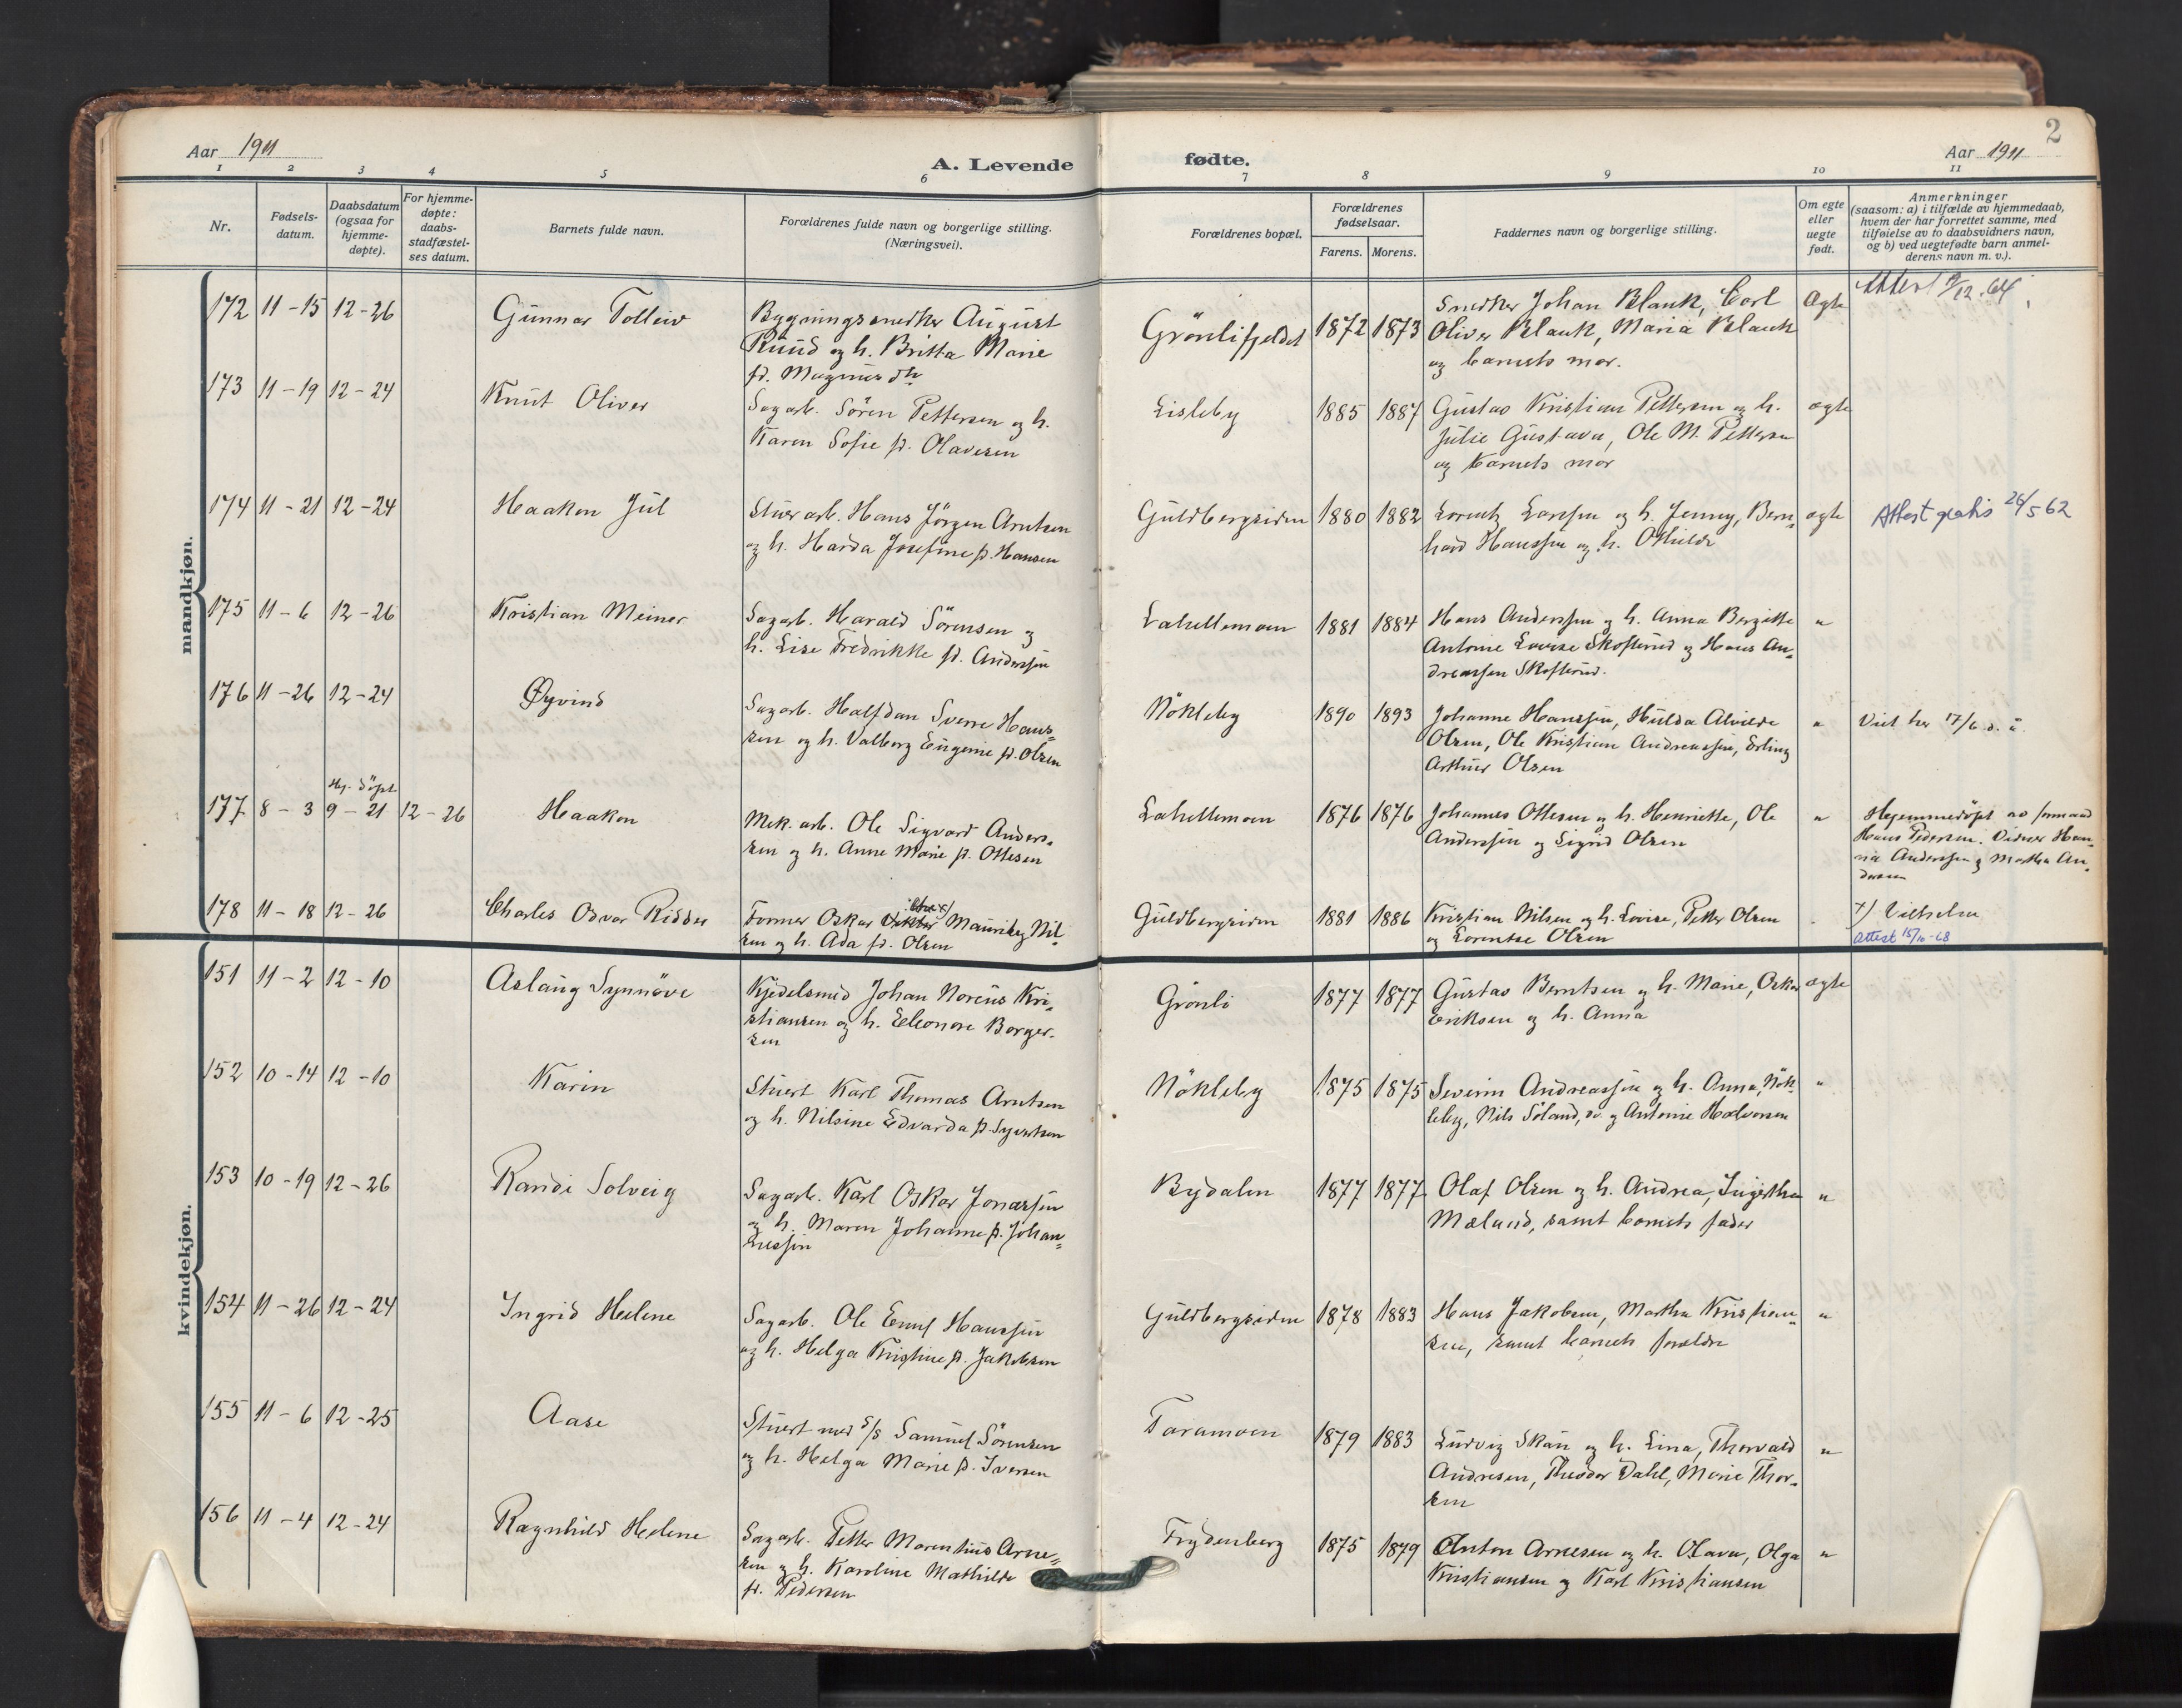 2
Aar 1911
A. Levende
fødte.
Aar 1911
1 2 3 4 5 6 7 8 9 10 11
Nr.
Fødsels-
datum.
Daabsdatum
(ogsaa for
hjemme-
døpte).
For hjemme-
døpte:
daabs-
stadfæstel-
ses datum.
Barnets fulde navn.
Forældrenes fulde navn og borgerlige stilling.
(Næringsvei).
Forældrenes bopæl.
Forældrenes
fødselsaar.
Farens. Morens.
Faddernes navn og borgerlige stilling.
Om egte
eller
uegte
født.
Anmerkninger
(saasom: a) i tilfælde av hjemmedaab,
hvem der har forrettet samme, med
tilføielse av to daabsvidners navn,
og b) ved uegtefødte barn anmel-
derens navn m. v.).
mandkjøn.
172 11-15 12-26 Gunnar Tolleiv
Bygningssnedker August
Ruud og h. Britta Marie
f. Magnusdtr
Grönlifjeldet 1872 1873
Snedker Johan Blank, Carl
Oliver Blank, Maria Blank
og barnets mor.
Ægte
173 11-19 12-24 Knut Oliver
Sagarb. Sören Pettersen og h.
Karen Sofie f. Olavesen
Lisleby 1885 1887
Gustav Kristian Pettersen og h.
Julie Gustava, Ole M. Pettersen
og barnets mor
ægte
174 11-21 12-24 Haakon Jul
Stuerarb. Hans Jörgen Arntsen
og h. Harda Josefine f. Hansen
Guldbergsiden 1880 1882
Lorentz Larssen og h. Jenny, Bern-
hard Hanssen og h. Othilde
ægte
Attest gratis 26/5 62
175 11-6 12-26 Kristian Meiner
Sagarb. Harald Sörensen og
h. Lise Fredrikke f. Anderssen
Lahellemoen 1881 1884
Hans Anderssen og h. Anna Bergitte
Antonie Lovise Skofterud og Hans An-
dreassen Skofterud.
"
176 11-26 12-24 Øyvind
Sagarb. Halfdan Sverre Hans-
sen og h. Valborg Eugenie f. Olsen
Nökleby 1890 1893
Johanne Hanssen, Hulda Alvilde
Olsen, Ole Kristian Andreassen, Erling
Arthur Olsen
"
Viet her 17/6 s. å.
Hj. döpt
177 8-3 9-21 12-26 Haakon
Mek. arb. Ole Sigvard Anders-
sen og h. Anne Marie f. Ottesen
Lahellemoen 1876 1876
Johannes Ottesen og h. Henriette, Ole
Anderssen og Sigrid Olsen
"
Hjemmedöpt av
Hans Pedersen. Vidner Han-
na Anderssen og Martha An-
178 11-18 12-26 Charles Osvar Ridder
Former Oskar Viktor x) Mauritz Nil-
sen og h. Ada f. Olsen
Guldbergsiden 1881 1886
Kristian Nilsen og h. Lovise, Petter Olsen
og Lorentse Olsen
x) Vilhelm
Attest 15/10-68
kvindekjøn.
151 11-2 12-10 Aslaug Synnöve
Kjedelsmed Johan Noreus Kri-
stiansen og h. Eleonore Borger-
sen
Grönli 1877 1877
Gustav Berntsen og h. Marie, Oskar
Eriksen og h. Anna
ægte
152 10-14 12-10 Karin
Stuert Karl Thomas Arntsen
og h. Nilsine Edvarda f. Syvertsen
Nökleby 1875 1875
Severin Andreassen og h. Anna, Nök-
leby, Nils Söland, og Antonie Halvorsen
"
153 10-19 12-26 Randi Solveig
Sagarb. Karl Oskar Jonassen
og h. Maren Johanne f. Johan-
nessen
Bydalen 1877 1877
Olaf Olsen og h. Andrea, Ingerthea
Mæland, samt barnets fader
"
154 11-26 12-24 Ingrid Helene
Sagarb. Ole Emil Hanssen
og h. Helga Kristine f. Jakobsen
Guldbergsiden 1878 1883
Hans Jakobsen, Martha Kristian-
sen, samt barnets forældre
"
155 11-6 12-25 Aase
Stuert med s/s Samuel Sörensen
og h. Helga Marie f. Iversen
Taramoen 1879 1883
Ludvig Skau og h. Lina, Thorvald
Andresen, Theodor Dahl, Marie Thor-
sen
"
156 11-4 12-24 Ragnhild Helene
Sagarb. Petter Marentius Arne-
sen og h. Karoline Mathilde
f. Pedersen
Frydenberg 1875 1879
Anton Arnesen og h. Olava, Olga
Kristiansen og Karl Kristiansen
"